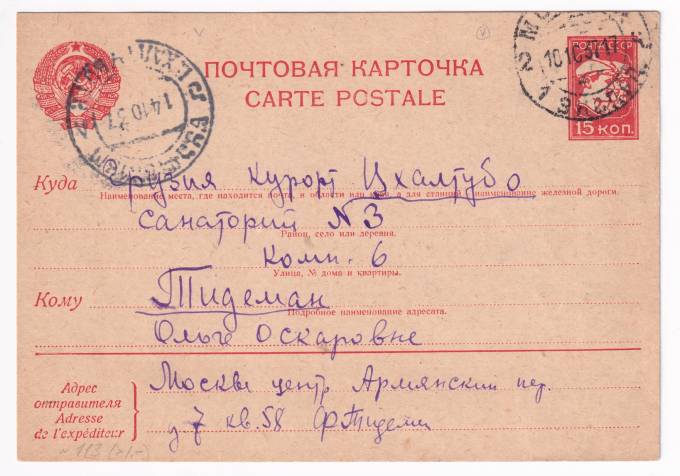 ПОЧТОВАЯ КАРТОЧКА
CARTE POSTALE
ПОЧТА СССР
15 КОП.
10 10 37 17
14 10 37
Куда Грузия Курорт Цхалтубо
Наименование места, где находится почта, и области или края, а для станций наименование железной дороги.
Санаторий № 3
Район, село или деревня.
Комн. 6
Улица, № дома и квартиры.
Кому Тидеман
Подробное наименование адресата.
Ольге Оскаровне
Адрес отправителя
Adresse de l'expéditeur
Москва центр Армянский пер.
д 7 кв. 58 Ф Тидеман